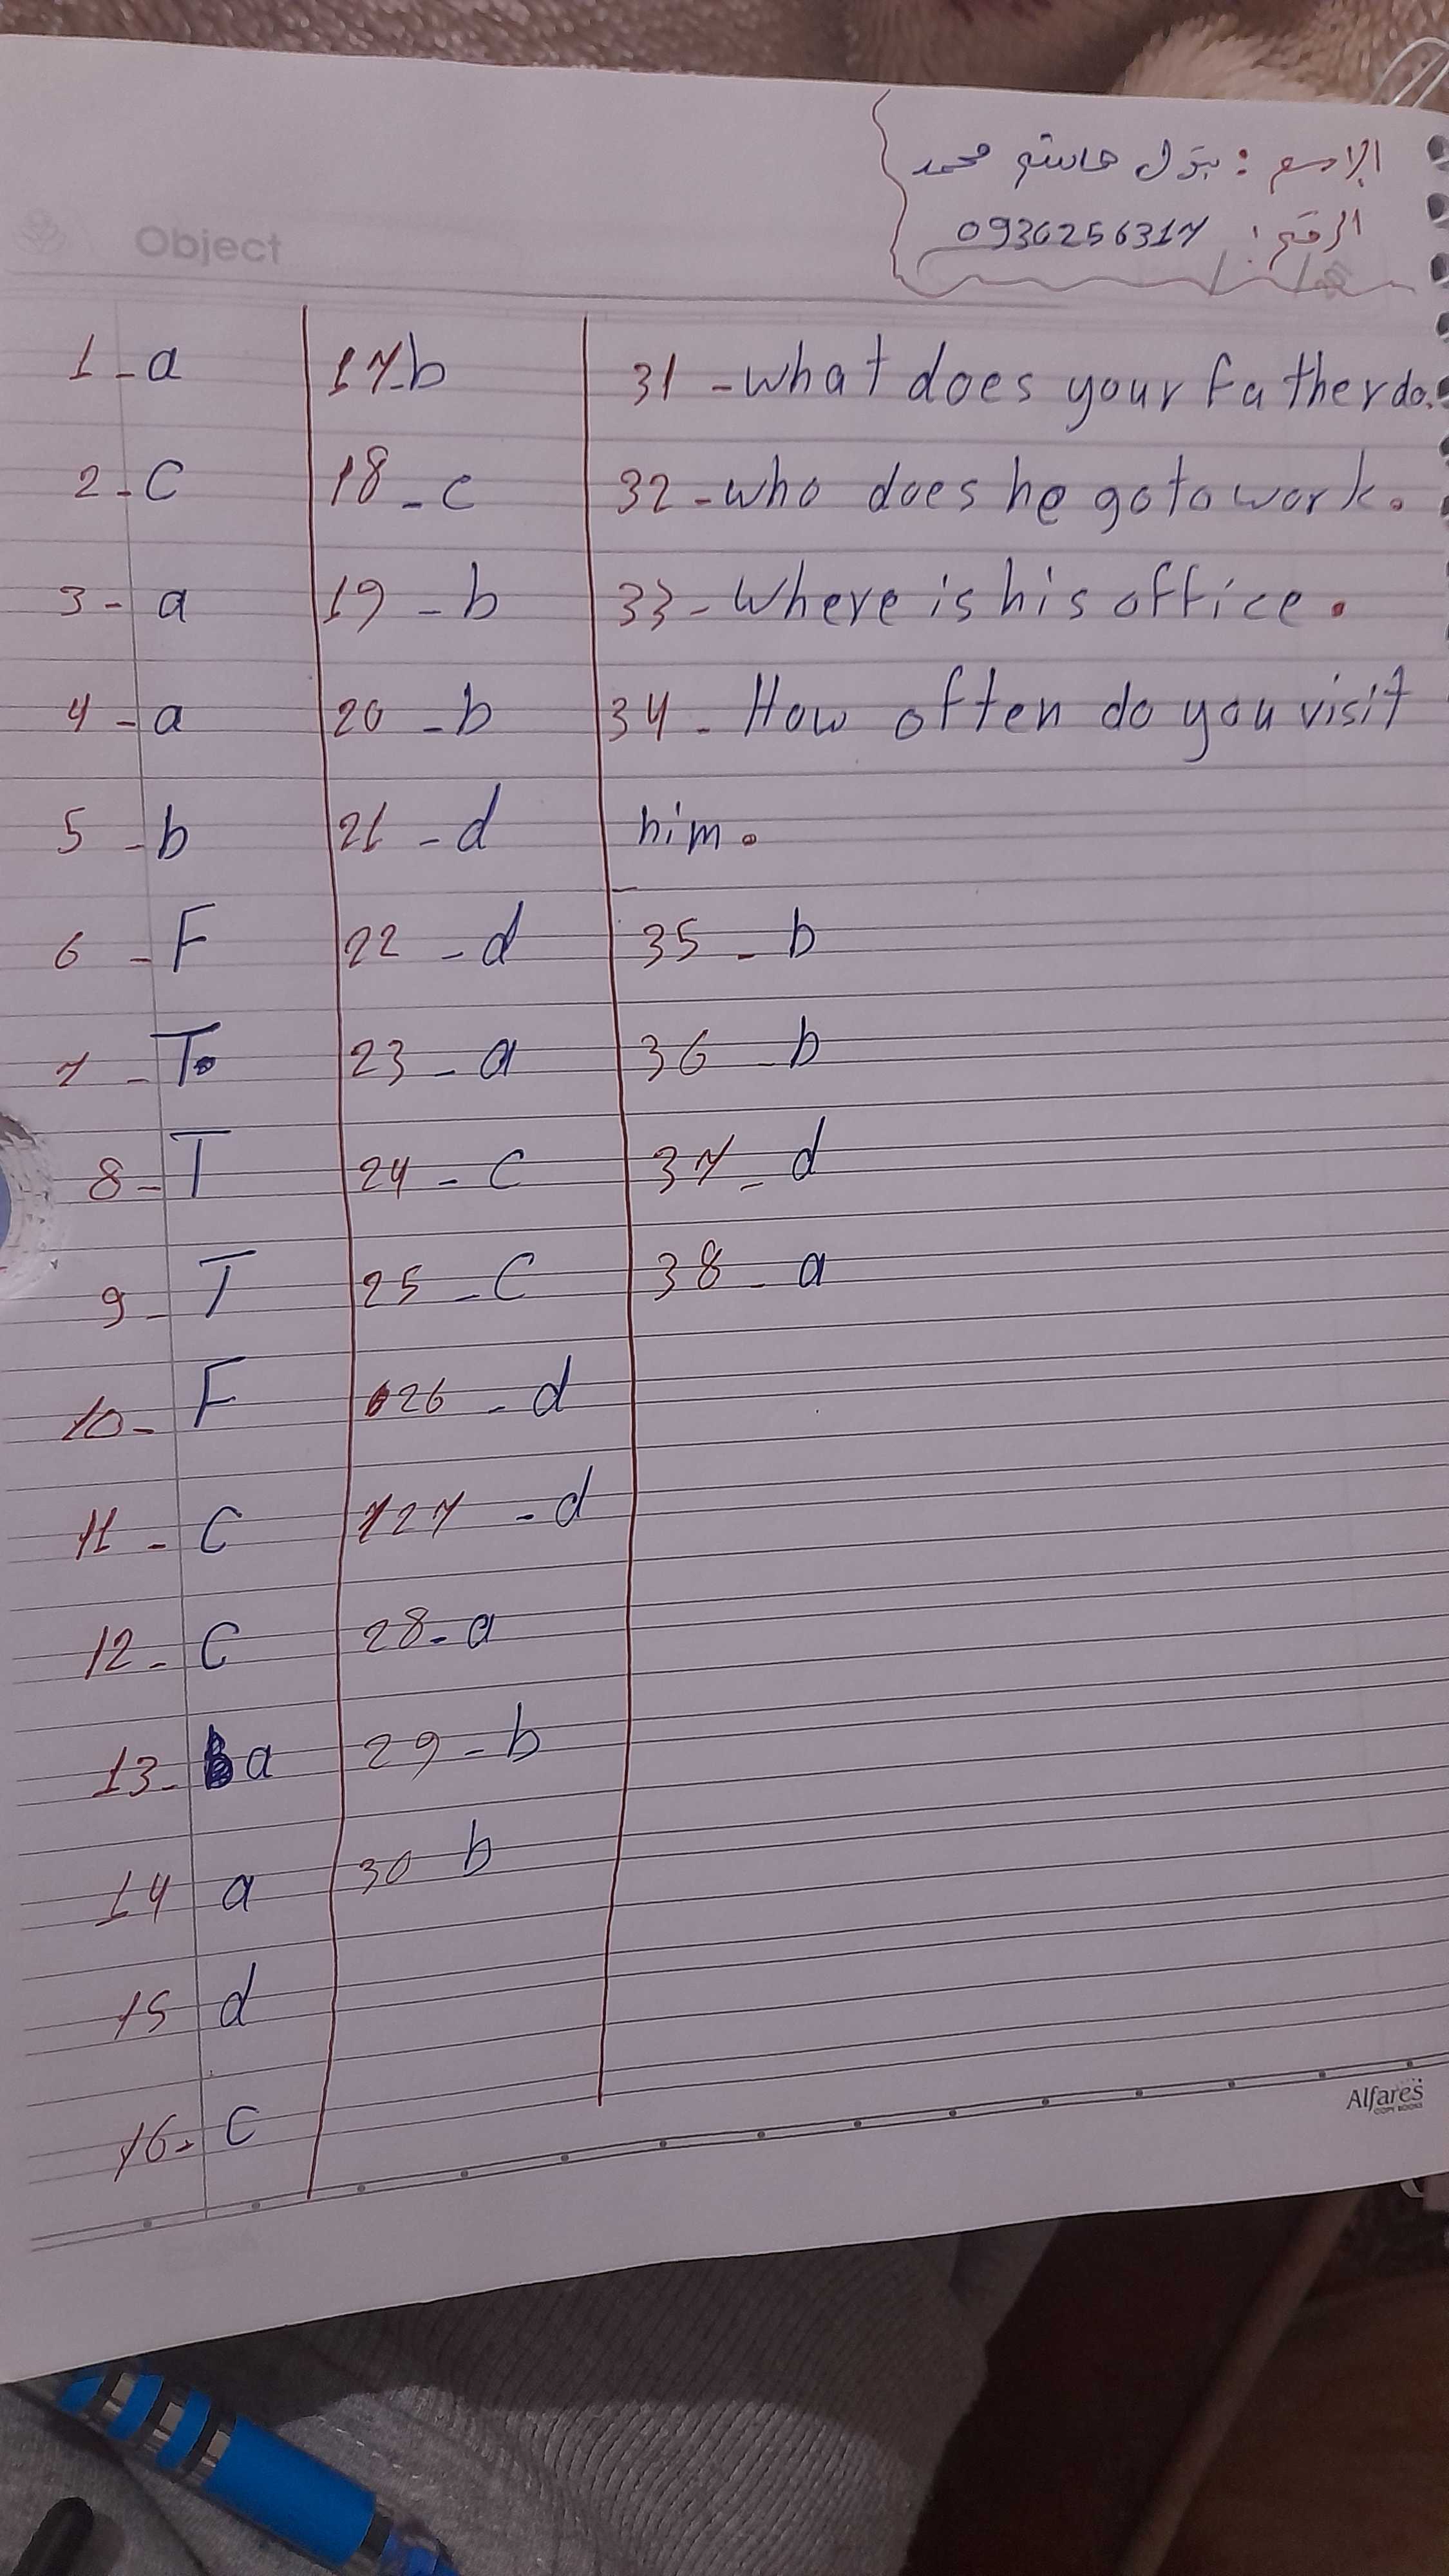 الاسم : بتول هاشم محمد
الرقم : 0936256317
Object
1 - a
2 - c
3 - a
4 - a
5 - b
6 - F
7 - T
8 - T
9 - T
10 - F
11 - C
12 - C
13 - a
14 a
15 d
16 - C
17 - b
18 - c
19 - b
20 - b
21 - d
22 - d
23 - a
24 - C
25 - C
26 - d
27 - d
28 - a
29 - b
30 b
31 - what does your father do.
32 - who does he go to work.
33 - Where is his office.
34 - How often do you visit
him.
35 - b
36 - b
37 - d
38 - a
Alfares
COPY BOOKS